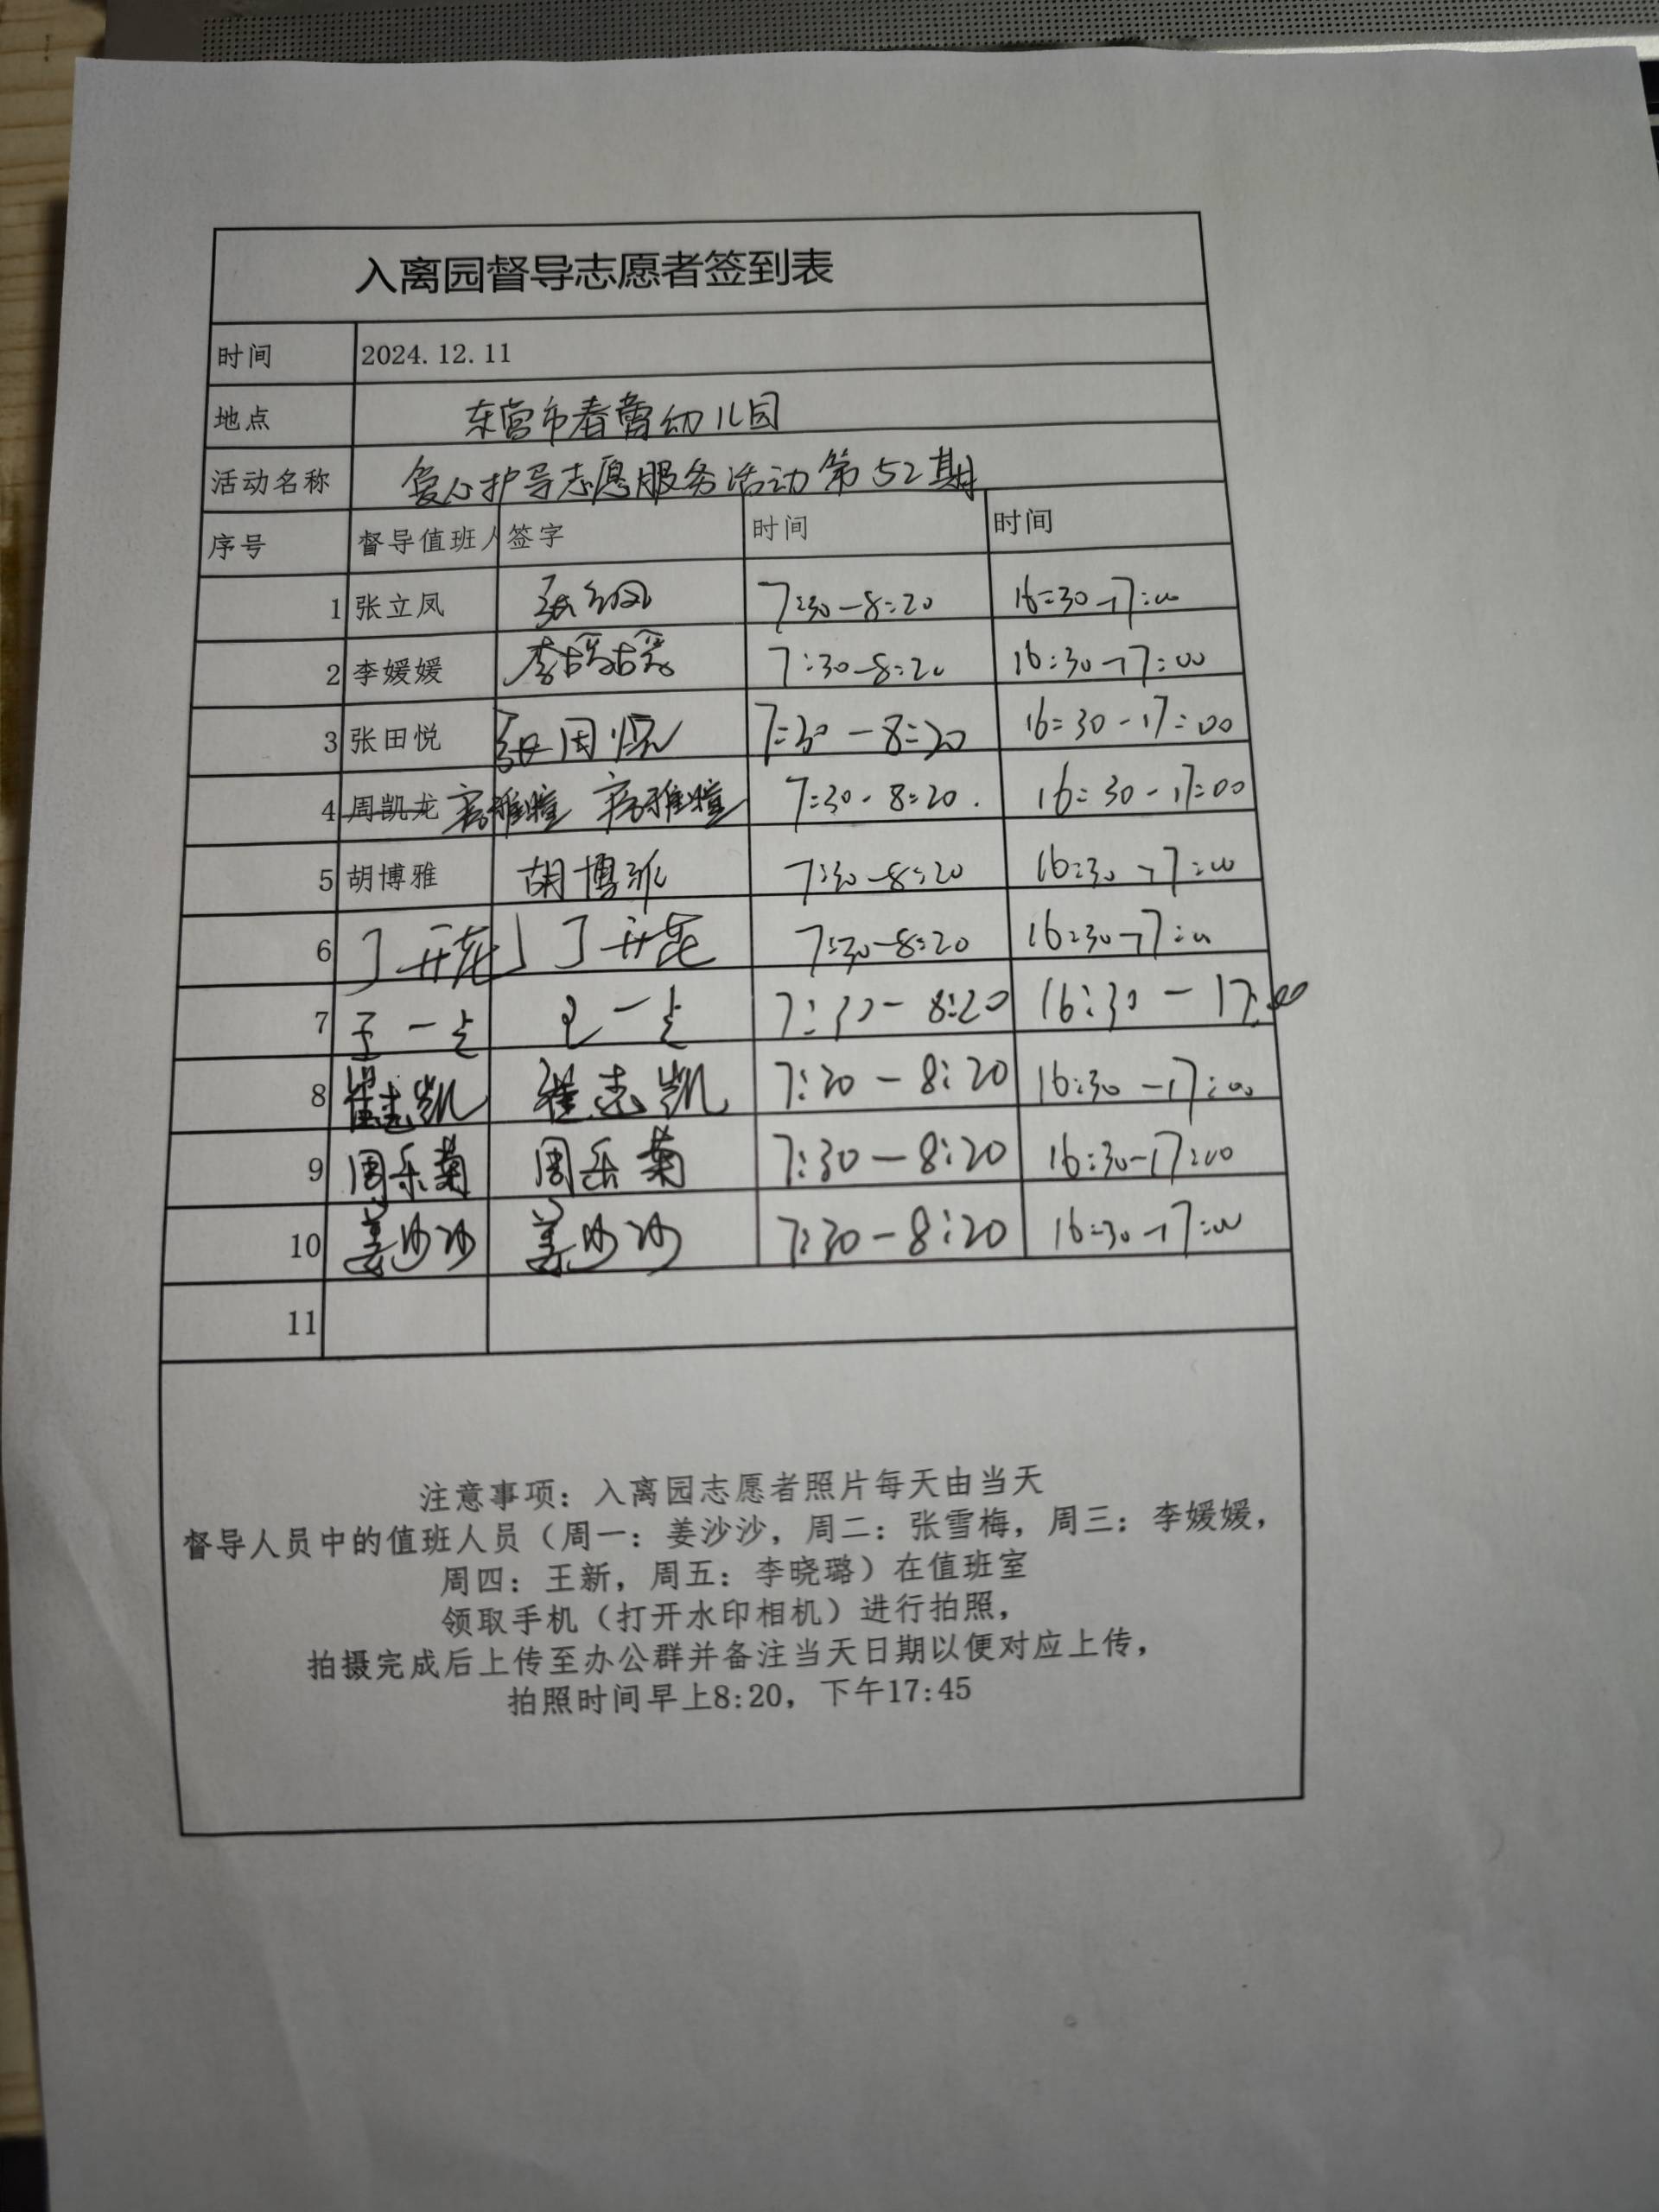 入离园督导志愿者签到表
时间 2024.12.11
地点 东营市春蕾幼儿园
活动名称 爱心护导志愿服务活动第52期
序号 督导值班人 签字 时间 时间
1 张立凤 张立凤 7:30-8:20 16:30-17:00
2 李媛媛 李媛媛 7:30-8:20 16:30-17:00
3 张田悦 张田悦 7:30-8:20 16:30-17:00
4 周凯龙 7:30-8:20. 16:30-17:00
5 胡博雅 胡博雅 7:30-8:20 16:30-17:00
6 丁开花 丁开花 7:30-8:20 16:30-17:00
7 王一 王一 7:30-8:20 16:30-17:00
8 崔志凯 崔志凯 7:30-8:20 16:30-17:00
9 周乐菊 周乐菊 7:30-8:20 16:30-17:00
10 姜沙沙 姜沙沙 7:30-8:20 16:30-17:00
11
注意事项：入离园志愿者照片每天由当天
督导人员中的值班人员（周一：姜沙沙，周二：张雪梅，周三：李媛媛，
周四：王新，周五：李晓璐）在值班室
领取手机（打开水印相机）进行拍照，
拍摄完成后上传至办公群并备注当天日期以便对应上传，
拍照时间早上8:20，下午17:45